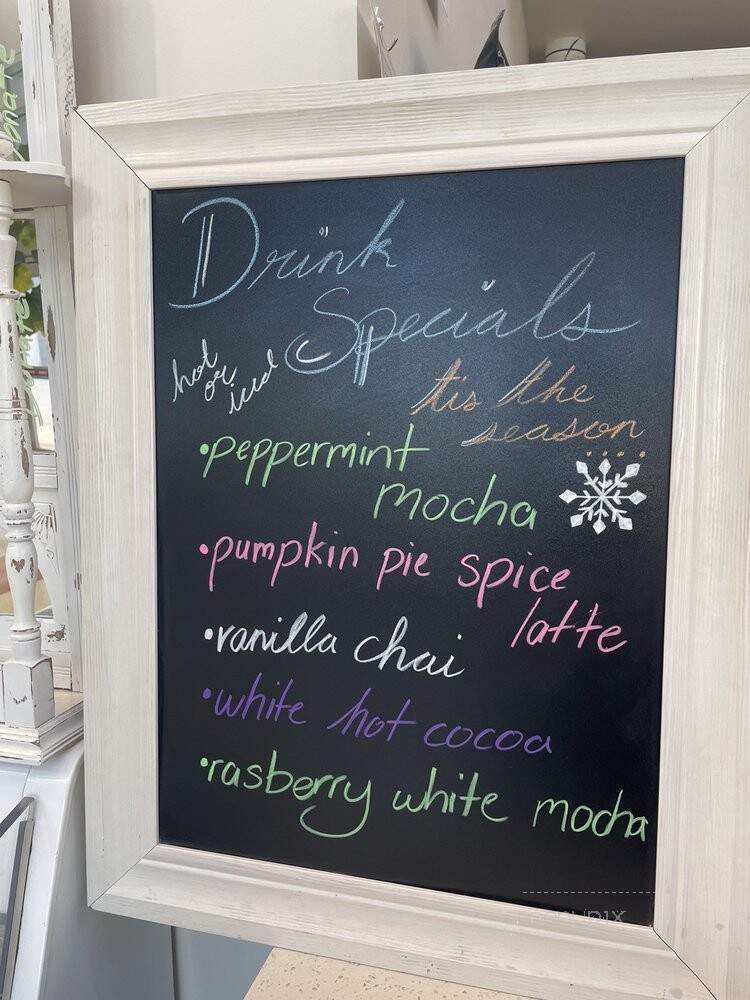 Drink
Specials
hot
or
iced
'tis the
season....
•peppermint
mocha
•pumpkin pie spice
latte
•vanilla chai
•white hot cocoa
•rasberry white mocha